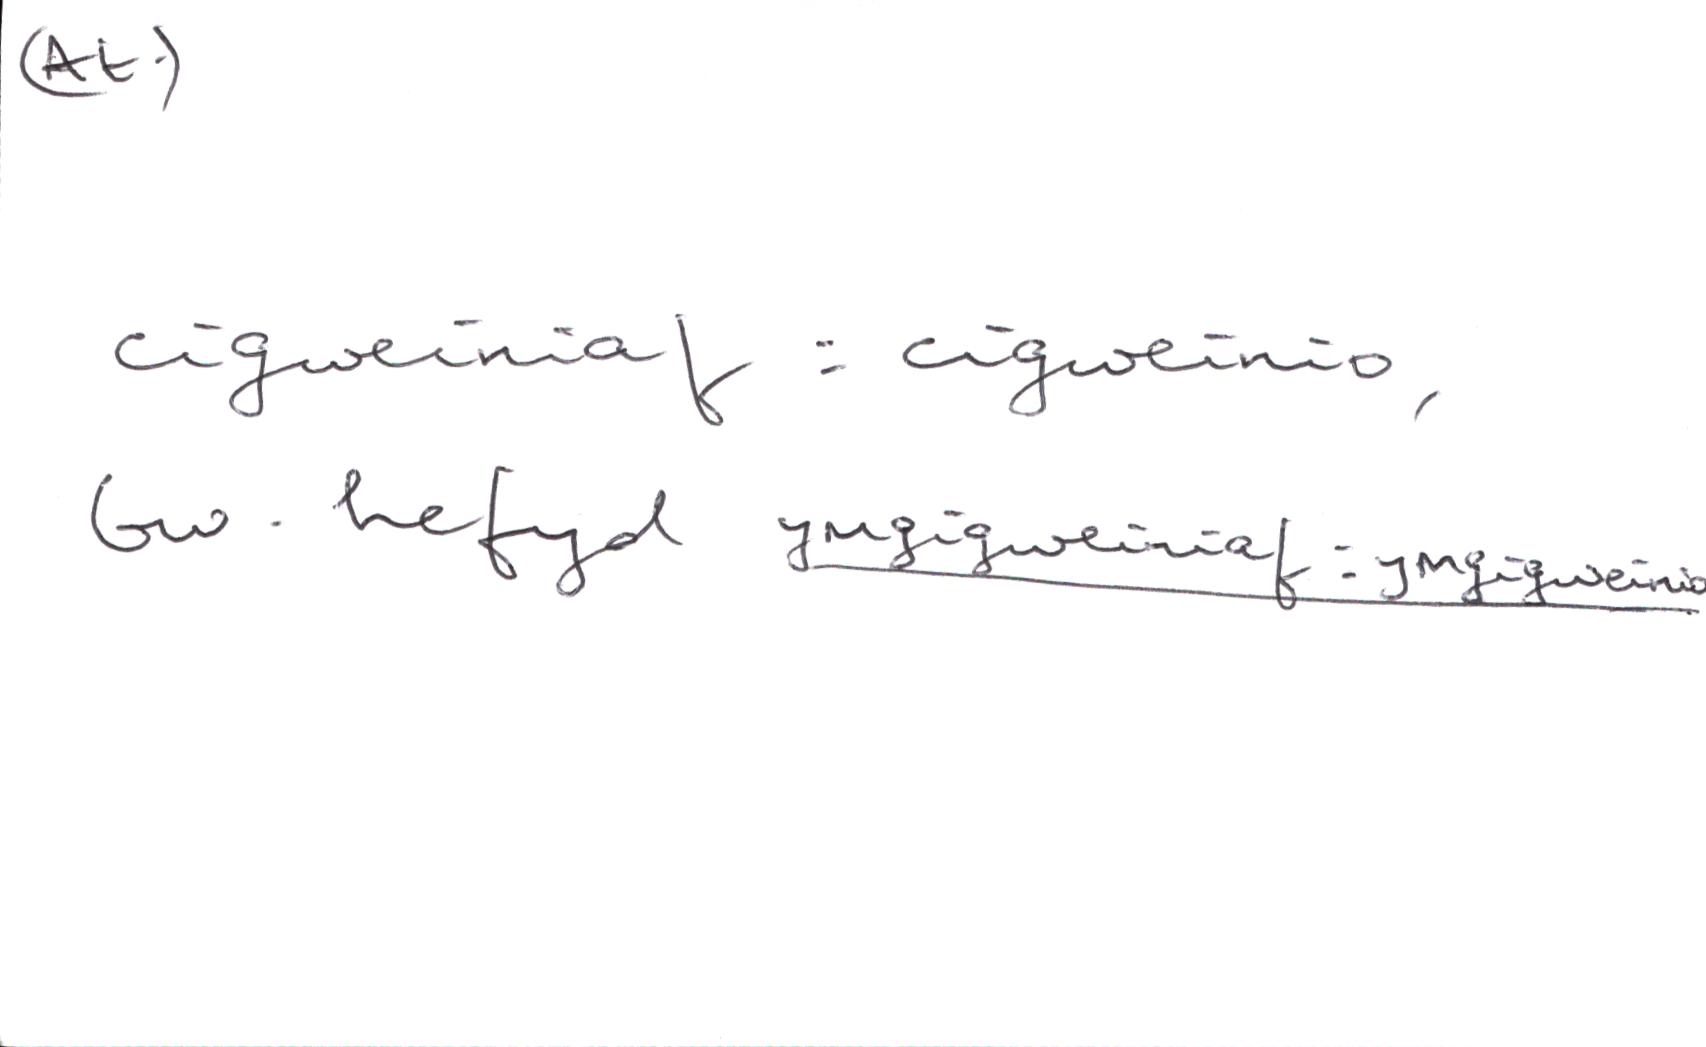 (At.)
cigweiniaf : cigweinio,
Gw. hefyd ymgigweiniaf : ymgigweinio